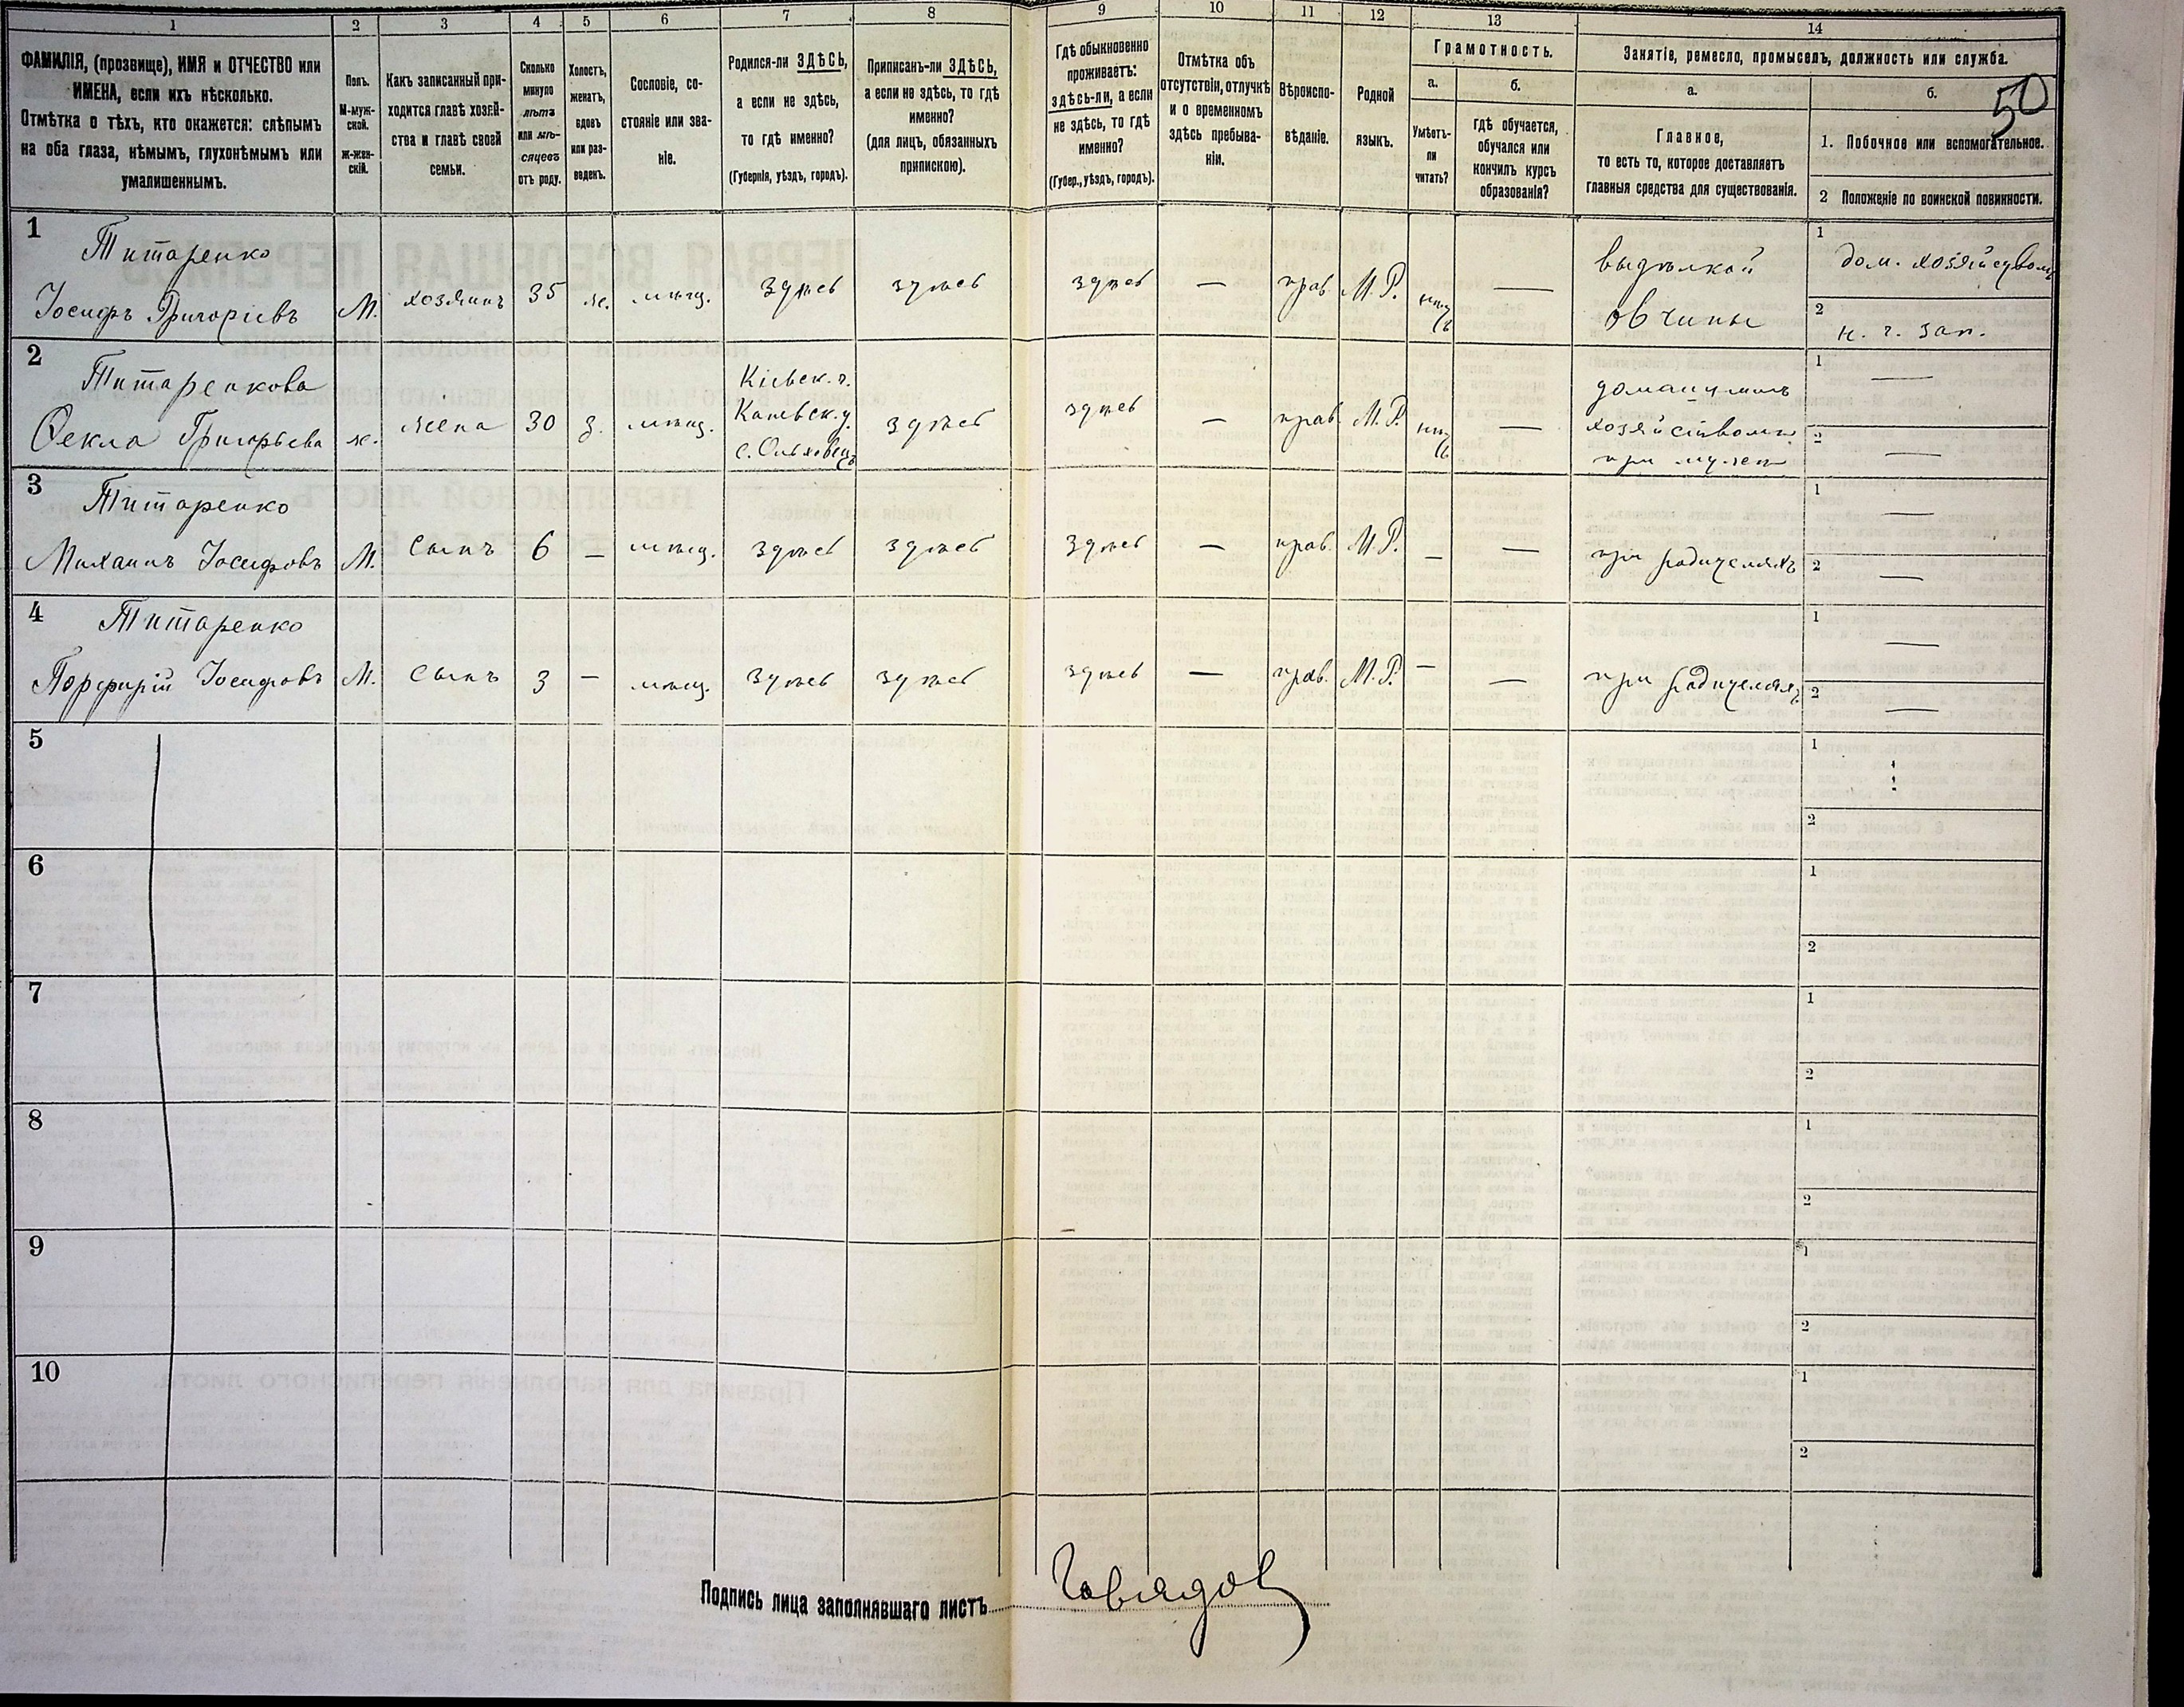 1
2
3
4
5
6
7
8
ФАМИЛІЯ, (прозвище), ИМЯ и ОТЧЕСТВО или
ИМЕНА, если ихъ нѣсколько.
Отмѣтка о тѣхъ, кто окажется: слѣпымъ
на оба глаза, нѣмымъ, глухонѣмымъ или
умалишеннымъ.
Полъ.
М-муж-
ской.
Ж-жен-
скій.
Какъ записанный при-
ходится главѣ хозяй-
ства и главѣ своей
семьи.
Сколько
минуло
лѣтъ
или мѣ-
сяцевъ
отъ роду.
Холостъ,
женатъ,
вдовъ
или раз-
веденъ.
Сословіе, со-
стояніе или зва-
ніе.
Родился-ли ЗДѢСЬ,
а если не здѣсь,
то гдѣ именно?
(Губернія, уѣздъ, городъ).
Приписанъ-ли ЗДѢСЬ,
а если не здѣсь, то гдѣ
именно?
(для лицъ, обязанныхъ
припискою).
9
10
11
12
13
14
Гдѣ обыкновенно
проживаетъ:
здѣсь-ли, а если
не здѣсь, то гдѣ
именно?
(Губер., уѣздъ, городъ).
Отмѣтка объ
отсутствіи, отлучкѣ
и о временномъ
здѣсь пребыва-
ніи.
Вѣроиспо-
вѣданіе.
Родной
языкъ.
Грамотность.
а.
б.
Умѣетъ-
ли
читать?
гдѣ обучается,
обучался или
кончилъ курсъ
образованія?
Занятіе, ремесло, промыселъ, должность или служба.
а.
б.
50
Главное,
то есть то, которое доставляетъ
главныя средства для существованія.
1. Побочное или вспомогательное.
2 Положеніе по воинской повинности.
1
Титаренко
Іосифъ Григоріевъ
М.
хозяинъ
35
ж.
мѣщ.
здѣсь
здѣсь
здѣсь
—
прав.
М. Р.
нѣтъ
—
выдѣлкой
овчины
1
дом. хозяйством
2
н. ч. зап.
2
Титаренкова
Ѳекла Григорьева
ж.
жена
30
з.
мѣщ.
Кіевск. г.
Каневск. у.
с. Ольховецъ
здѣсь
здѣсь
—
прав.
М. Р.
нѣтъ
—
домашнимъ
хозяйствомъ
при мужѣ
1
—
2
—
3
Титаренко
Михаилъ Іосифовъ
М.
сынъ
6
—
мѣщ.
здѣсь
здѣсь
здѣсь
—
прав.
М. Р.
—
—
при родителяхъ
1
—
2
—
4
Титаренко
Порфирій Іосифовъ
М.
сынъ
3
—
мѣщ.
здѣсь
здѣсь
здѣсь
—
прав.
М. Р.
—
—
при родителяхъ
1
—
2
—
5
1
2
6
1
2
7
1
2
8
1
2
9
1
2
10
1
2
Подпись лица заполнявшаго листъ